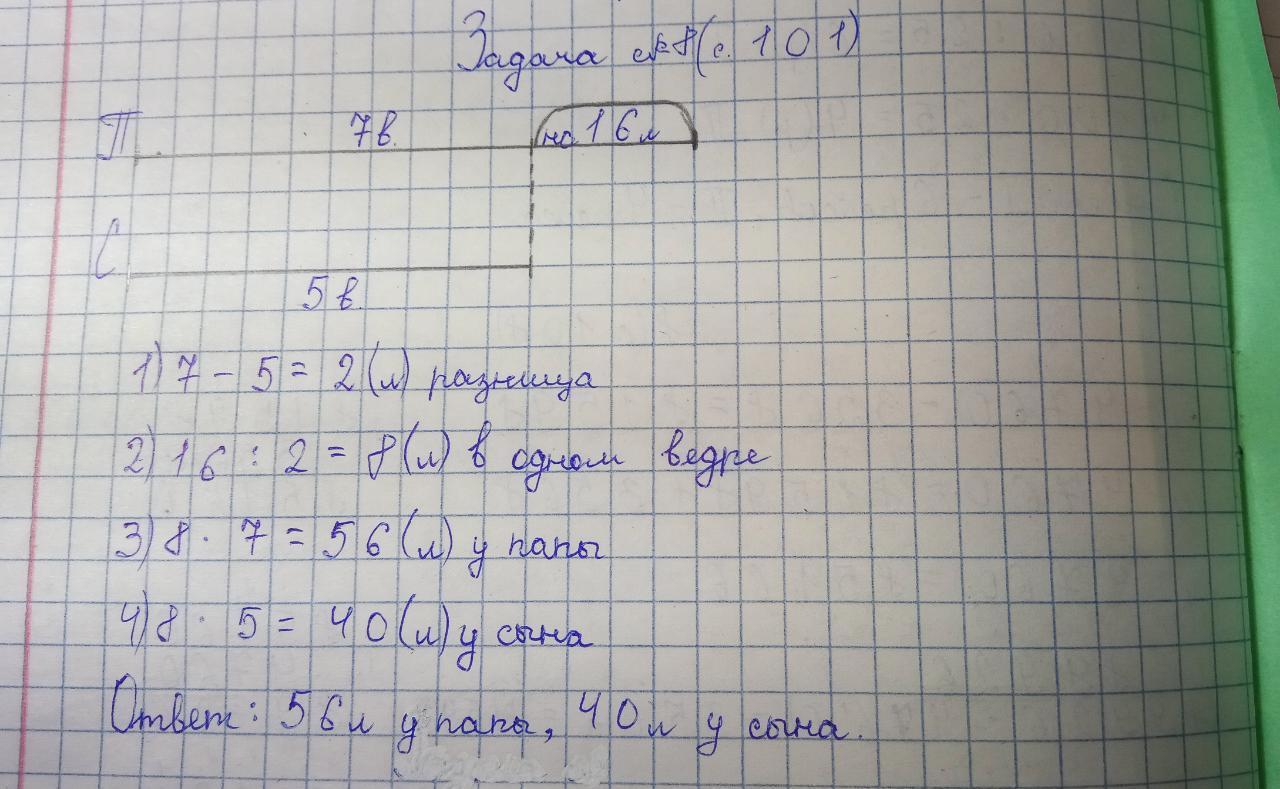 Задача №8(с. 101)
П 7в. на 16л
С
5в.
1) 7 - 5 = 2(л) разница
2) 16 : 2 = 8(л) в одном ведре
3) 8 · 7 = 56(л) у папы
4) 8 · 5 = 40(л) у сына
Ответ: 56л у папы, 40л у сына.